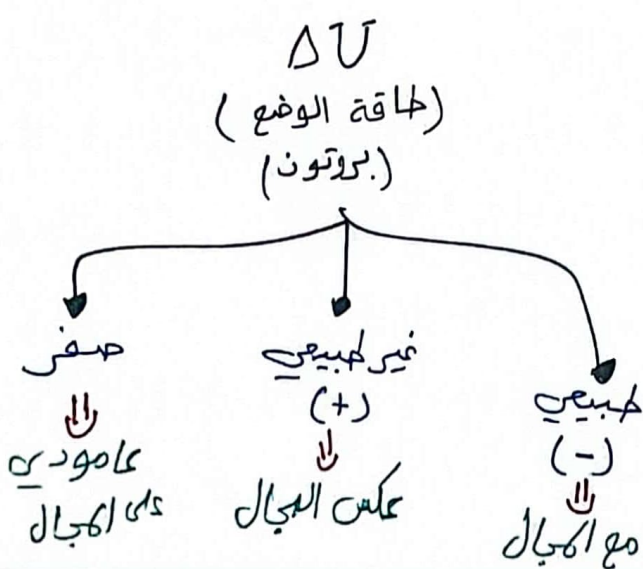 ΔU
(طاقة الوضع)
(بروتون)
طبيعي
(-)
مع المجال
غير طبيعي
(+)
عكس المجال
صفر
عامودي
على المجال